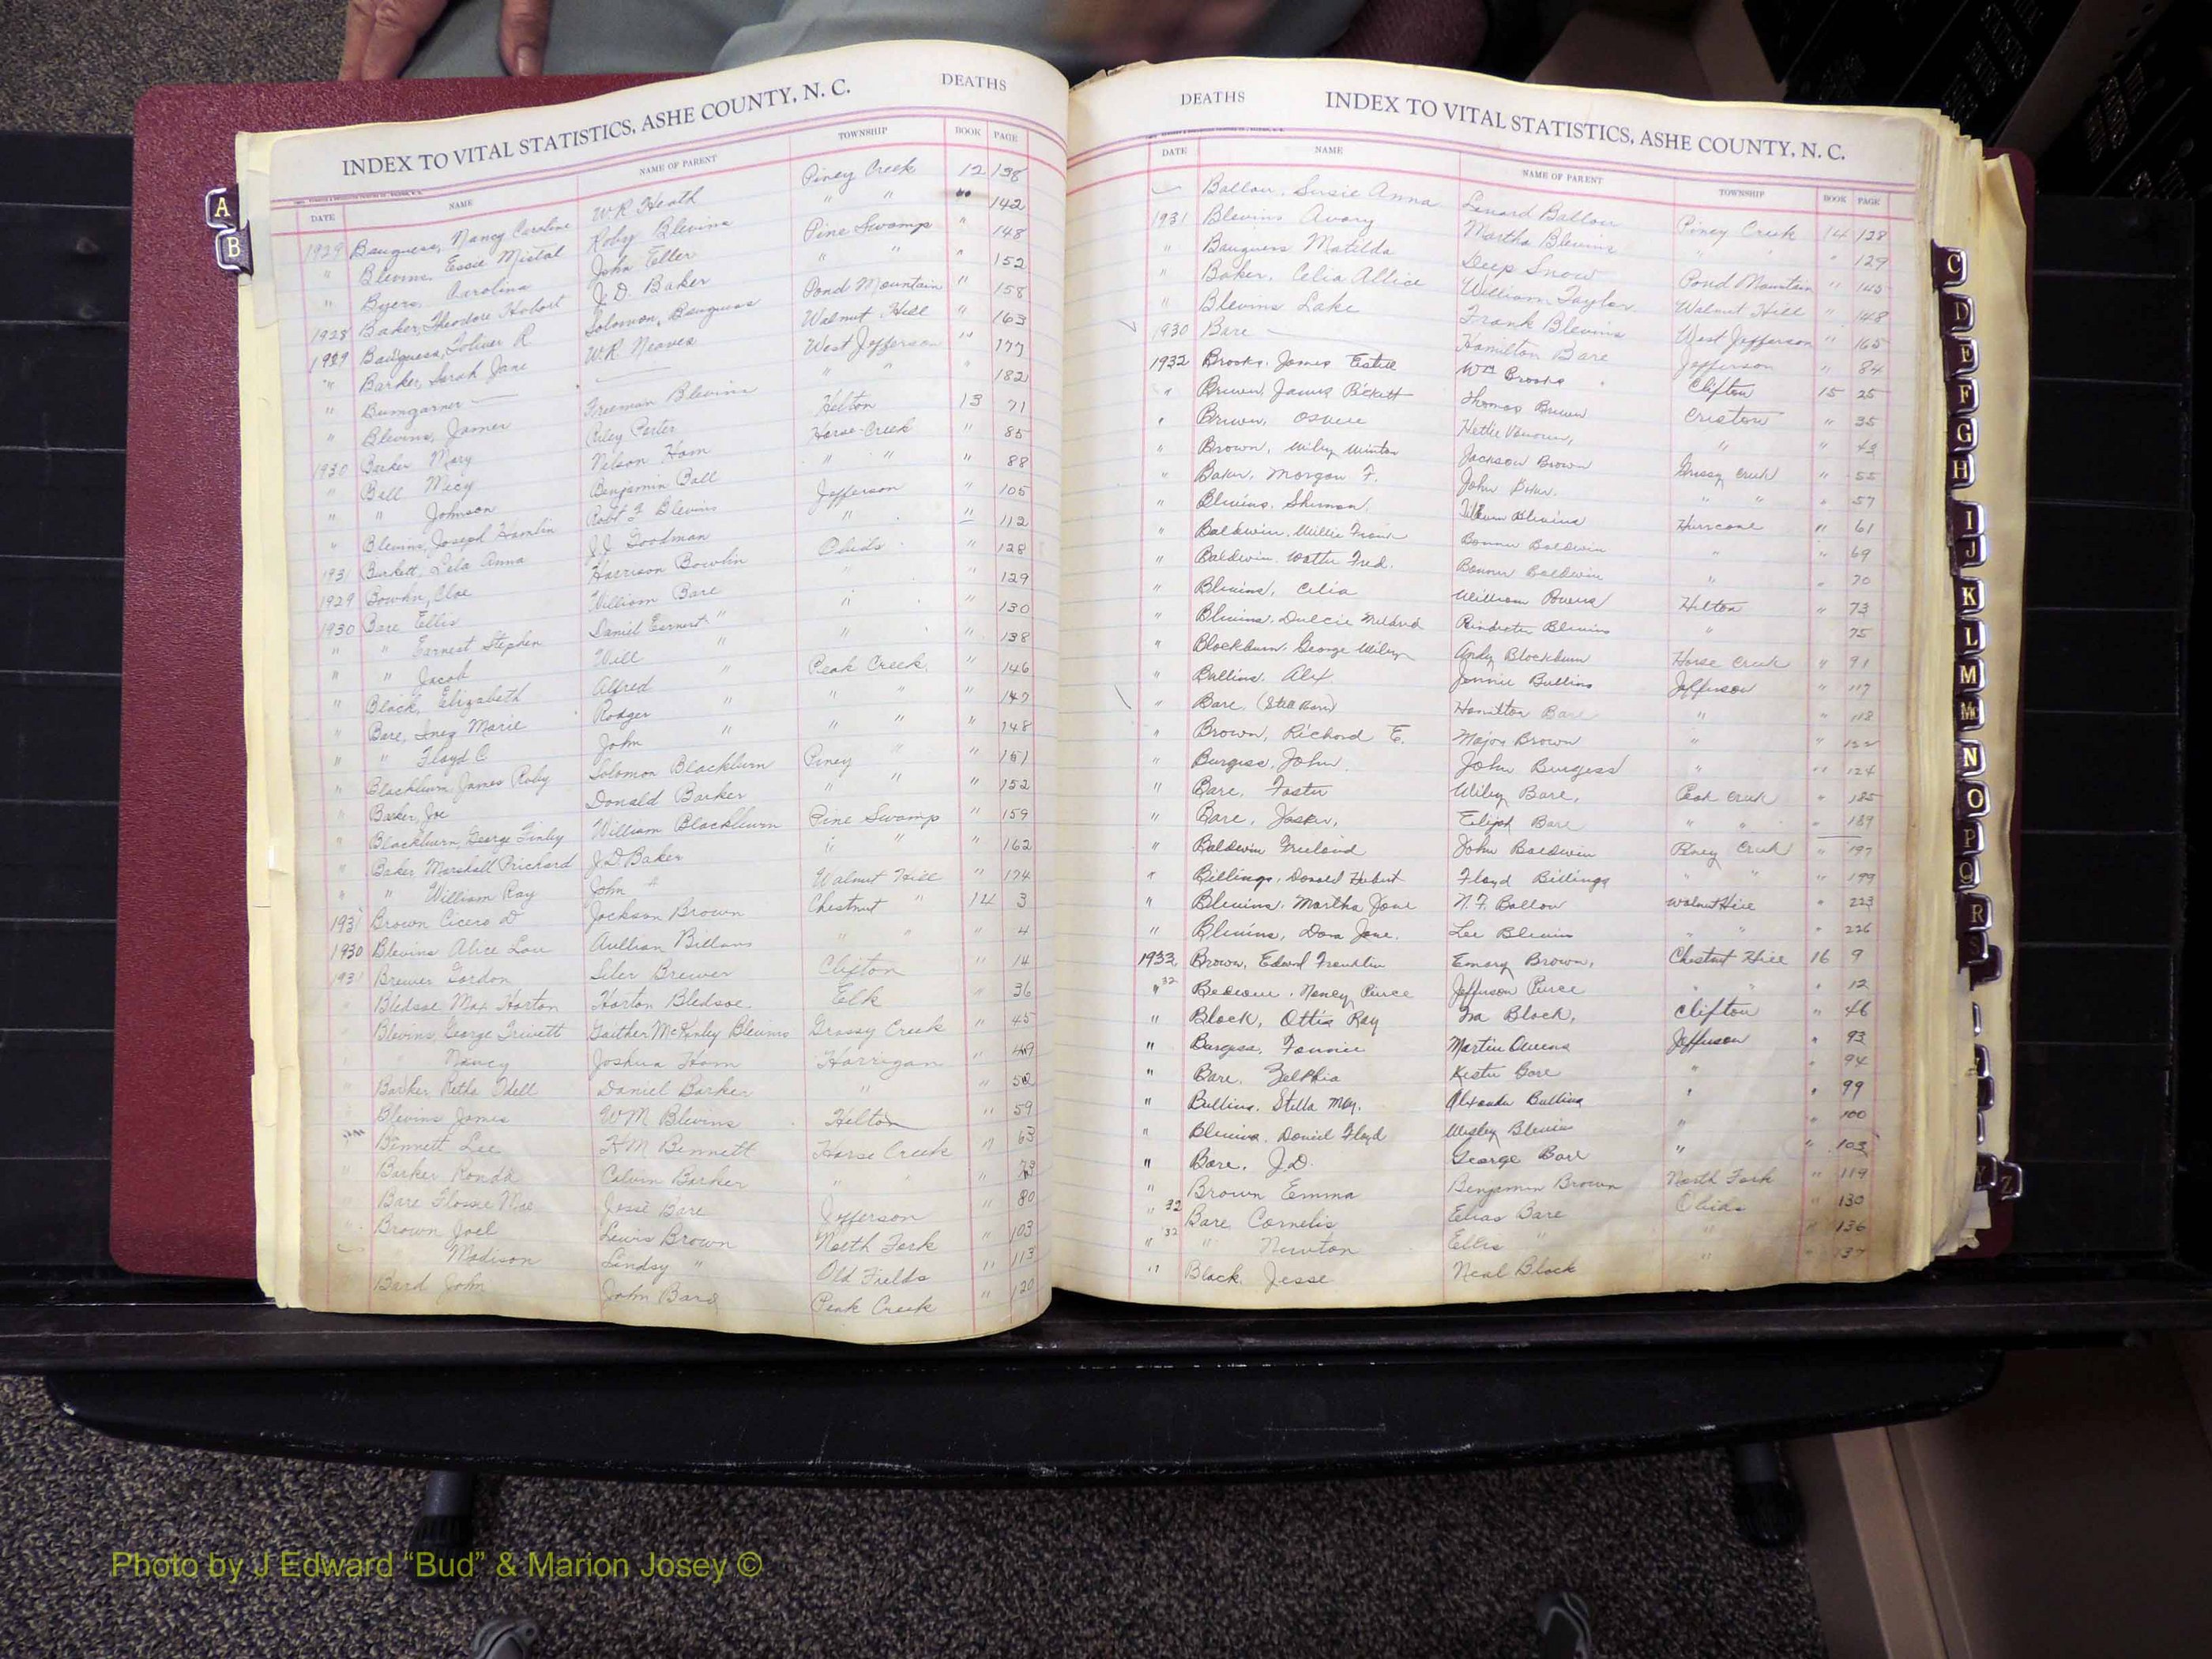 INDEX TO VITAL STATISTICS, ASHE COUNTY, N. C. DEATHS
DATE NAME NAME OF PARENT TOWNSHIP BOOK PAGE
1929 Bauguess, Nancy Caroline W.R. Heath Piney Creek 12 138
" Blevins, Essie Mistal Roby Blevins " " 142
" Byers, Carolina John Eller Pine Swamp " 148
1928 Baker, Theodore Hobert J.D. Baker " " 152
1929 Bauguess, Toliver R Solomon Bauguess Pond Mountain " 158
" Barker, Sarah Jane W.R. Neaves Walnut Hill " 163
" Bumgarner — West Jefferson " 177
" Blevins, James Freeman Blevins " " " 182
1930 Barker Mary Riley Porter Helton 13 71
" Ball Mecy Nelson Ham Horse Creek " 85
" " Johnson Benjamin Ball " " " 88
" Blevins, Joseph Hamlin Robt F Blevins Jefferson " 105
1931 Burkett, Lela Anna J.J. Goodman " " 112
1929 Bowlin, Cloe Harrison Bowlin Obids " 128
1930 Bare Ellis William Bare " " 129
" " Earnest Stephen Daniel Earnest " " " 130
" " Jacob Will " " " 138
" Black, Elizabeth Alfred " Peak Creek " 146
" Bare, Inez Marie Rodger " " " " 147
" " Floyd C John " " " " 148
" Blackburn James Roby Solomon Blackburn Piney " " 151
" Barker, Joe Donald Barker " " " 152
" Blackburn, George Finley William Blackburn Pine Swamp " 159
" Baker Marshall Prichard J.D. Baker " " " 162
" " William Ray John " Walnut Hill " 174
1931 Brown Cicero D Jackson Brown Chestnut " 14 3
1930 Blevins Alice Lou " " " 4
1931 Brewer Gordon Siler Brewer Clifton " 14
Bledsoe Max Horton Horton Bledsoe Elk " 36
Blevins, George Trivett Gaither McKinley Blevins Grassy Creek " 45
" Nancy Joshua Ham 49
Barker Retha Odell Daniel Barker " " 52
Blevins James W M Blevins Helton " 59
Bennett Lee Bennett Horse Creek " 63
Barker Ronda Calvin Barker " "
Bare Flossie Mae Jesse Bare Jefferson " 80
Brown Joel Lewis Brown North Fork " 103
Madison Lindsy " Old Fields " 113
Bard John John Bard Peak Creek " 120
DEATHS INDEX TO VITAL STATISTICS, ASHE COUNTY, N. C.
DATE NAME NAME OF PARENT TOWNSHIP BOOK PAGE
Ballou, Susie Anna Lenard Ballou Piney Creek 14 128
1931 Blevins Avory Martha Blevins " " " 129
" Bauguess Matilda Deep Snow Pond Mountain " 145
" Baker, Celia Allice William Taylor Walnut Hill " 148
" Blevins Lake Frank Blevins West Jefferson " 165
1930 Bare — Hamilton Bare Jefferson " 84
1932 Brooks, James Estell Wm Brooks Clifton 15 25
" Brown, James Pickett Thomas Brown Creston " 35
" Brown, Hettie " " 43
" Brown, Wiley Winton Jackson Brown Grassy Creek " 55
" Baker, Morgan F. John Baker " " " 57
" Blevins, Sherman William Blevins Hurricane " 61
" Baldwin, Millie Bonner Baldwin " " 69
" Baldwin, Walter Fred. Bonner Baldwin " " 70
" Blevins, Celia William Powers Helton " 73
" Blevins, Dulcie Poindexter Blevins " 75
" Blackburn, George Wiley Andy Blackburn Horse Creek " 91
" Bullins, Alex Jennie Bullins Jefferson " 117
" Bare, (Still Born) Hamilton Bare " " 118
" Brown, Richard E. Major Brown " " 122
" Burgess, John John Burgess " " 124
" Bare, Foster Wiley Bare, Peak Creek " 185
" Bare, Elijah Bare " " " 189
" Baldwin Freeland John Baldwin Piney Creek " 197
" Billings, Donald Hobert Floyd Billings " " " 199
" Blevins, Martha Jane N.F. Ballou Walnut Hill " 223
" Blevins, Dora Jane. Lee Blevins " " " 226
1933 Brown, Edward Franklin Emory Brown, Chestnut Hill 16 9
" 32 Nancy Pierce Jefferson Pierce " " " 12
" Black, Ottis Ray Ira Black, Clifton " 46
" Burgess, Fannie Martin Owens Jefferson " 93
" Bare, Zelphia Kester Bare " 94
" Bullins, Stella May. Alexander Bullins " " 99
" Blevins, Daniel Floyd Wesley Blevins " " 100
" Bare, J.D. George Bare " " 103
" Brown Emma Benjamin Brown North Fork " 119
" 32 Bare Cornelis Elias Bare Obids " 130
" 32 " Newton Ellis " " " 136
" Black, Jesse Neal Black " " 137
A
B
C
D
E
F
G
H
I
J
K
L
M
Mc
N
O
P
Q
R
S
Y
Z
Photo by J Edward “Bud” & Marion Josey ©